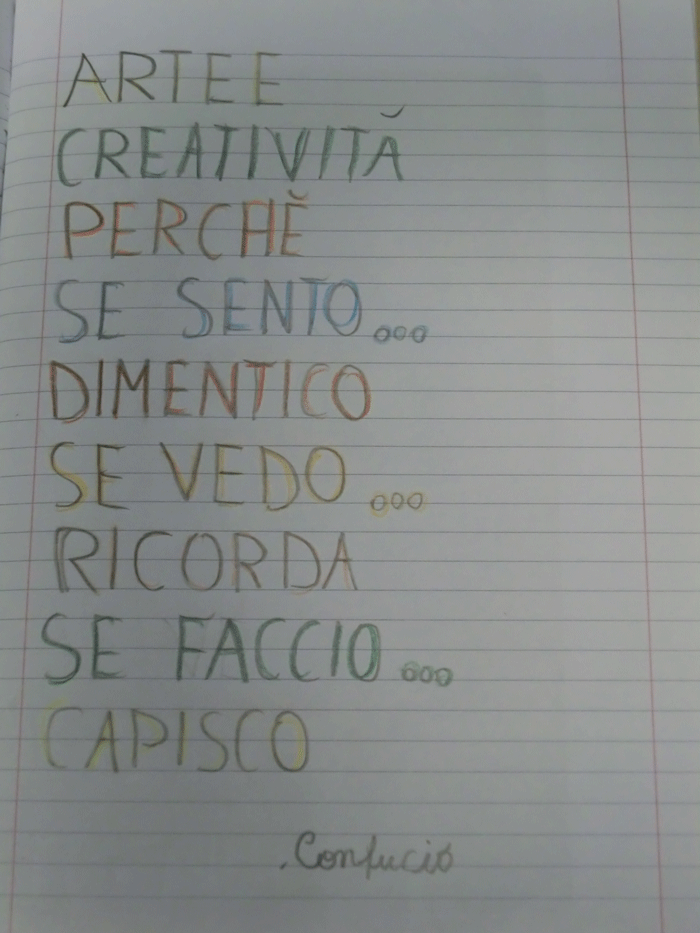 ARTE E
CREATIVITĂ
PERCHĔ
SE SENTO...
DIMENTICO
SE VEDO...
RICORDA
SE FACCIO...
CAPISCO
.Confucio